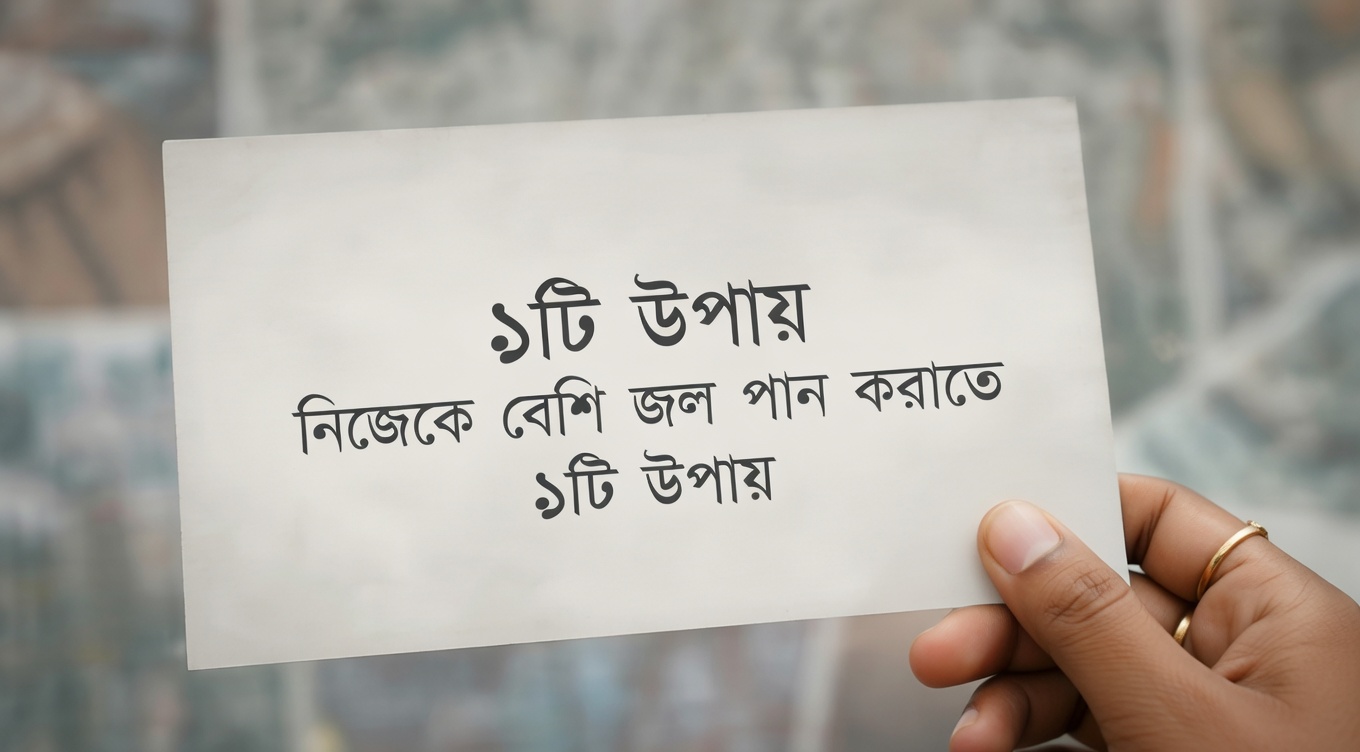 ১টি উপায়
নিজেকে বেশি জল পান করাতে
১টি উপায়